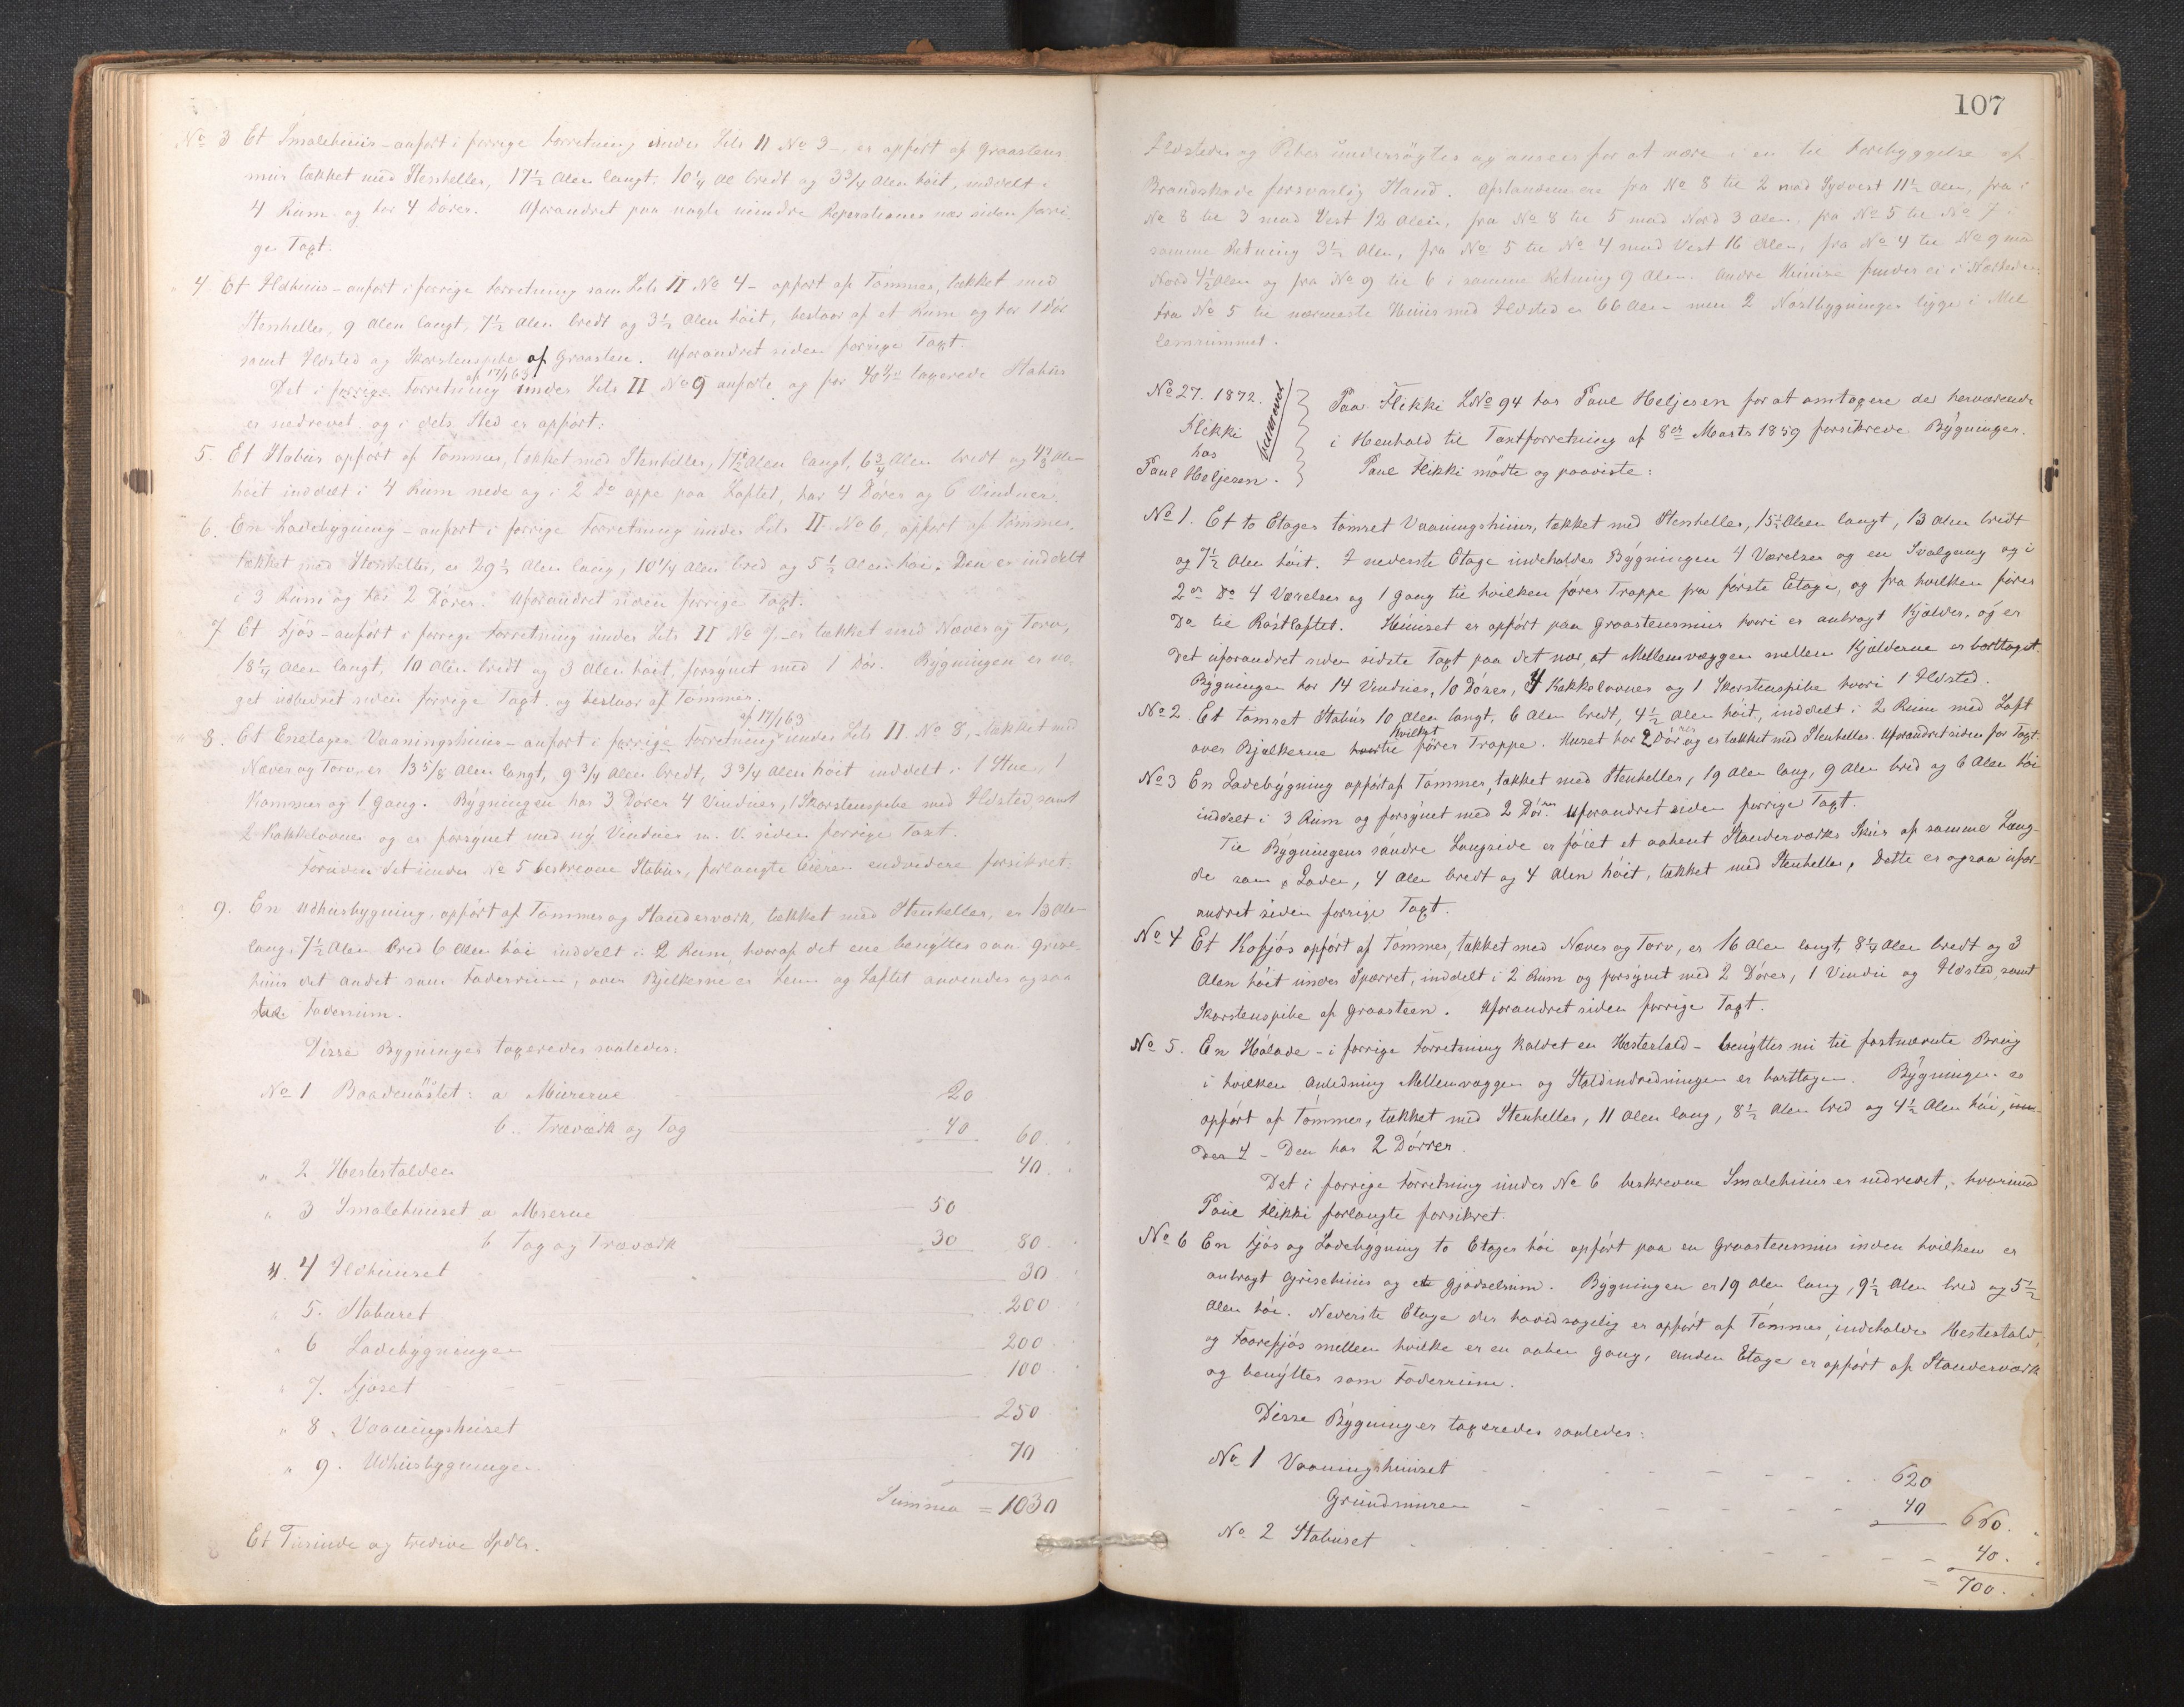 No 3 Et Smalehuus - anført i forrige Forretning under Litr II No 3 - er opført af Graastens
muur tækket med Stenheller, 17½ Alen langt, 10¼ Al bredt og 3¾ Alen høit, inddelt i
4 Rum og har 4 Døres. Uforandret paa nogle mindre Reperationer nær siden forri-
ge Taxt.
" 4 Et Ildhuus - anført i forrige Forretning som Litr II No 4 - opført af Tømmer, tækket med
Stenheller, 9 Alen langt, 7½ Alen bredt og 3½ Alen høit, bestaar af et Rum og har 1 Dør
samt Ildsted og Skorstenspibe af Graasten. Uforandret siden forrige Taxt.
Det i forrige Forretning af 17/1 63 under Litr II No 9 anførte og for 40 taxerede Stabur
er nedrevet og i dets Sted er opført:
5. Et Stabur opført af Tømmer, tækket med Stenheller, 17½ Alen langt, 6¾ Alen bredt og Alen
høit inddelt i 4 Rum nede og i 2 Do oppe paa Loftet, har 4 Døres og 6 Vinduer.
6. En Ladebygning - anført i forrige Forretning under Litr II No 6, opført af Tømmer,
tækket med Stenheller, er 29½ Alen lang, 10¼ Alen bred og 5½ Alen høi. Den er inddelt
i 3 Rum og har 2 Døres. Uforandret siden forrige Taxt.
7 Et Fjøs - anført i forrige Forretning under Litr II No 7 - er tækket med Næver og Torv,
18¼ Alen langt, 10 Alen bredt og 3 Alen høit, forsynet med 1 Dør. Bygningen er no-
get udbedret siden forrige Taxt og bestaar af Tømmer.
8. Et Enetages Vaaningshuus - anført i forrige Forretning af 17/1 63 under Litr II No 8, - tækket med
Næver og Torv, er 13 5/8 Alen langt, 9¾ Alen bredt, 3¾ Alen høit inddelt i 1 Stue, 1
Kammer og 1 Gang. Bygningen har 3 Døres 4 Vinduer, 1 Skorstenspibe med Ildsted, samt
2 Kakkelovne og er forsynet med ny Vinduer m. V. siden forrige Taxt.
Foruden det under No 5 beskrevne Stabur, forlangte Eieren endvidere forsikret:
9. En Udhuusbygning, opført af Tømmer og Standerværk, tækket med Stenheller, er 13 Alen
lang, 7½ Alen bred 6 Alen høi inddelt i 2 Rum, hvoraf det ene benyttes som Grise-
huus det andet som Foderrum, over Bjelkerne er Lem og Loftet anvendes ogsaa
Foderrum.
Disse Bygninger taxeredes saaledes:
No 1 Baadenøstet: a Murerne 20
b. Træværk og Tag 40 60.
" 2 Hestestalden 40.
" 3 Smalehuuset a Murerne 50
b Tag og Træværk 30 80.
" 4 Ildhuuset 30
" 5. Staburet 200
" 6 Ladebygningen 200
" 7. Fjøset 100
" 8. Vaaningshuset 250
" 9. Udhusbygningen 70
Summa = 1030
Et Tusinde og tredive Spdlr.
107
Ildsteder og Piber undersögtes og ansees for at være i en til Forebyggelse af
Brandskade forsvarlig Stand. Afstandene ere fra No 8 til 2 mod Sydvest 11½ Alen, fra
No 8 til 3 mod Vest 12 Alen, fra No 8 til 5 mod Nord 3 Alen, fra No 5 til No 7 i
samme Retning 3½ Alen, fra No 5 til No 4 mod Vest 16 Alen, fra No 4 til No 9 mod
Nord 4½ Alen og fra No 9 til 6 i samme Retning 9 Alen. Andre Huuse findes ei i Nærheden.
Fra No 5 til nærmeste Huus med Ildsted er 66 Alen men 2 Nøstbygninger ligge i Mel
lemrummet.
No 27. 1872.
Flikki
hos
Paul Heljesen.
Paa Flikki LNo 94 hos Paul Heljesen for at omtaxere de herværende
i Henhold til Taxtforretning af 8de Marts 1859 forsikrede Bygninger.
Paul Flikki mödte og paaviste:
No 1. Et to Etages tømret Vaaningshuus, tækket med Stenheller, 15½ Alen langt, 13 Alen bredt
og 7½ Alen høit. I nederste Etage indeholder Bygningen 4 Værelser og en Svalgang og i
2den Do 4 Værelser og 1 Gang til hvilken fører Trappe fra første Etage, og fra hvilken fører
Do til Røstloftet. Huuset er opført paa Graasteensmuur hvori er anbragt Kjælder, og er
det uforandret siden sidste Taxt paa det nær, at Mellemvæggen mellem Kjælderne er borttaget.
Bygningen har 14 Vinduer, 10 Døres, 4 Kakkelovner og 1 Skorstenspibe hvori 1 Ildsted.
No 2. Et tømret Stabur 10 Alen langt, 6 Alen bredt, 4½ Alen høit, inddelt i 2 Rum med Loft
over Bjelkerne hvortil hvilket fører Trappe. Huset har 2 Dörrer og er tækket med Stenheller. Uforandret siden for. Taxt.
No 3 En Ladebygning opført af Tømmer, tækket med Stenheller, 19 Alen lang, 9 Alen bred og 6 Alen høi
inddelt i 3 Rum og forsynet med 2 Dörrer. Uforandret siden forrige Taxt.
Til Bygningens søndre Langside er föiet et aabent Standerværks Skur af samme Læng-
de som Laden, 4 Alen bredt og 4 Alen høit, tækket med Stenheller, Dette er ogsaa ufor-
andret siden forrige Taxt.
No 4 Et Kofjøs opført af Tømmer, tækket med Næver og Torv, er 16 Alen langt, 8¼ Alen bredt og 3
Alen høit under Sparret, inddelt i 2 Rum og forsynet med 2 Döres, 1 Vindu og Ildsted samt
Skorstenspibe af Graasteen. Uforandret siden forrige Taxt.
No 5. En Hølade - i forrige Forretning kaldet en Hestestald - benyttes nu til førstnævnte Brug
i hvilken Anledning Mellemvæggen og Staldindredningen er borttagen. Bygningen er
opført af Tømmer, tækket med Stenheller, 11 Alen lang, 8½ Alen bred og 4½ Alen høi,
Den har 2 Dörrer.
Det i forrige Forretning under No 6 beskrevne Smalehuus er nedrevet, hvorimod
Paul Flikki forlangte forsikret.
No 6 En Fjøs og Ladebygning to Etager høi opført paa en Graasteensmuur inden hvilken er
anbragt Grisehuus og et Gjødselrum. Bygningen er 19 Alen lang, 9½ Alen bred og 5½
Alen høi. Nederste Etage der hovedsagelig er opført af Tømmer, indeholder Hestestald,
og Faarefjøs mellem hvilke er en aaben Gang, anden Etage er opført af Standerværk
og benyttes som Foderrum.
Disse Bygninger taxeredes saaledes:
No 1 Vaaningshuuset 620
Grundmuren 40 660.
No 2 Stabuset 40.
= 700.